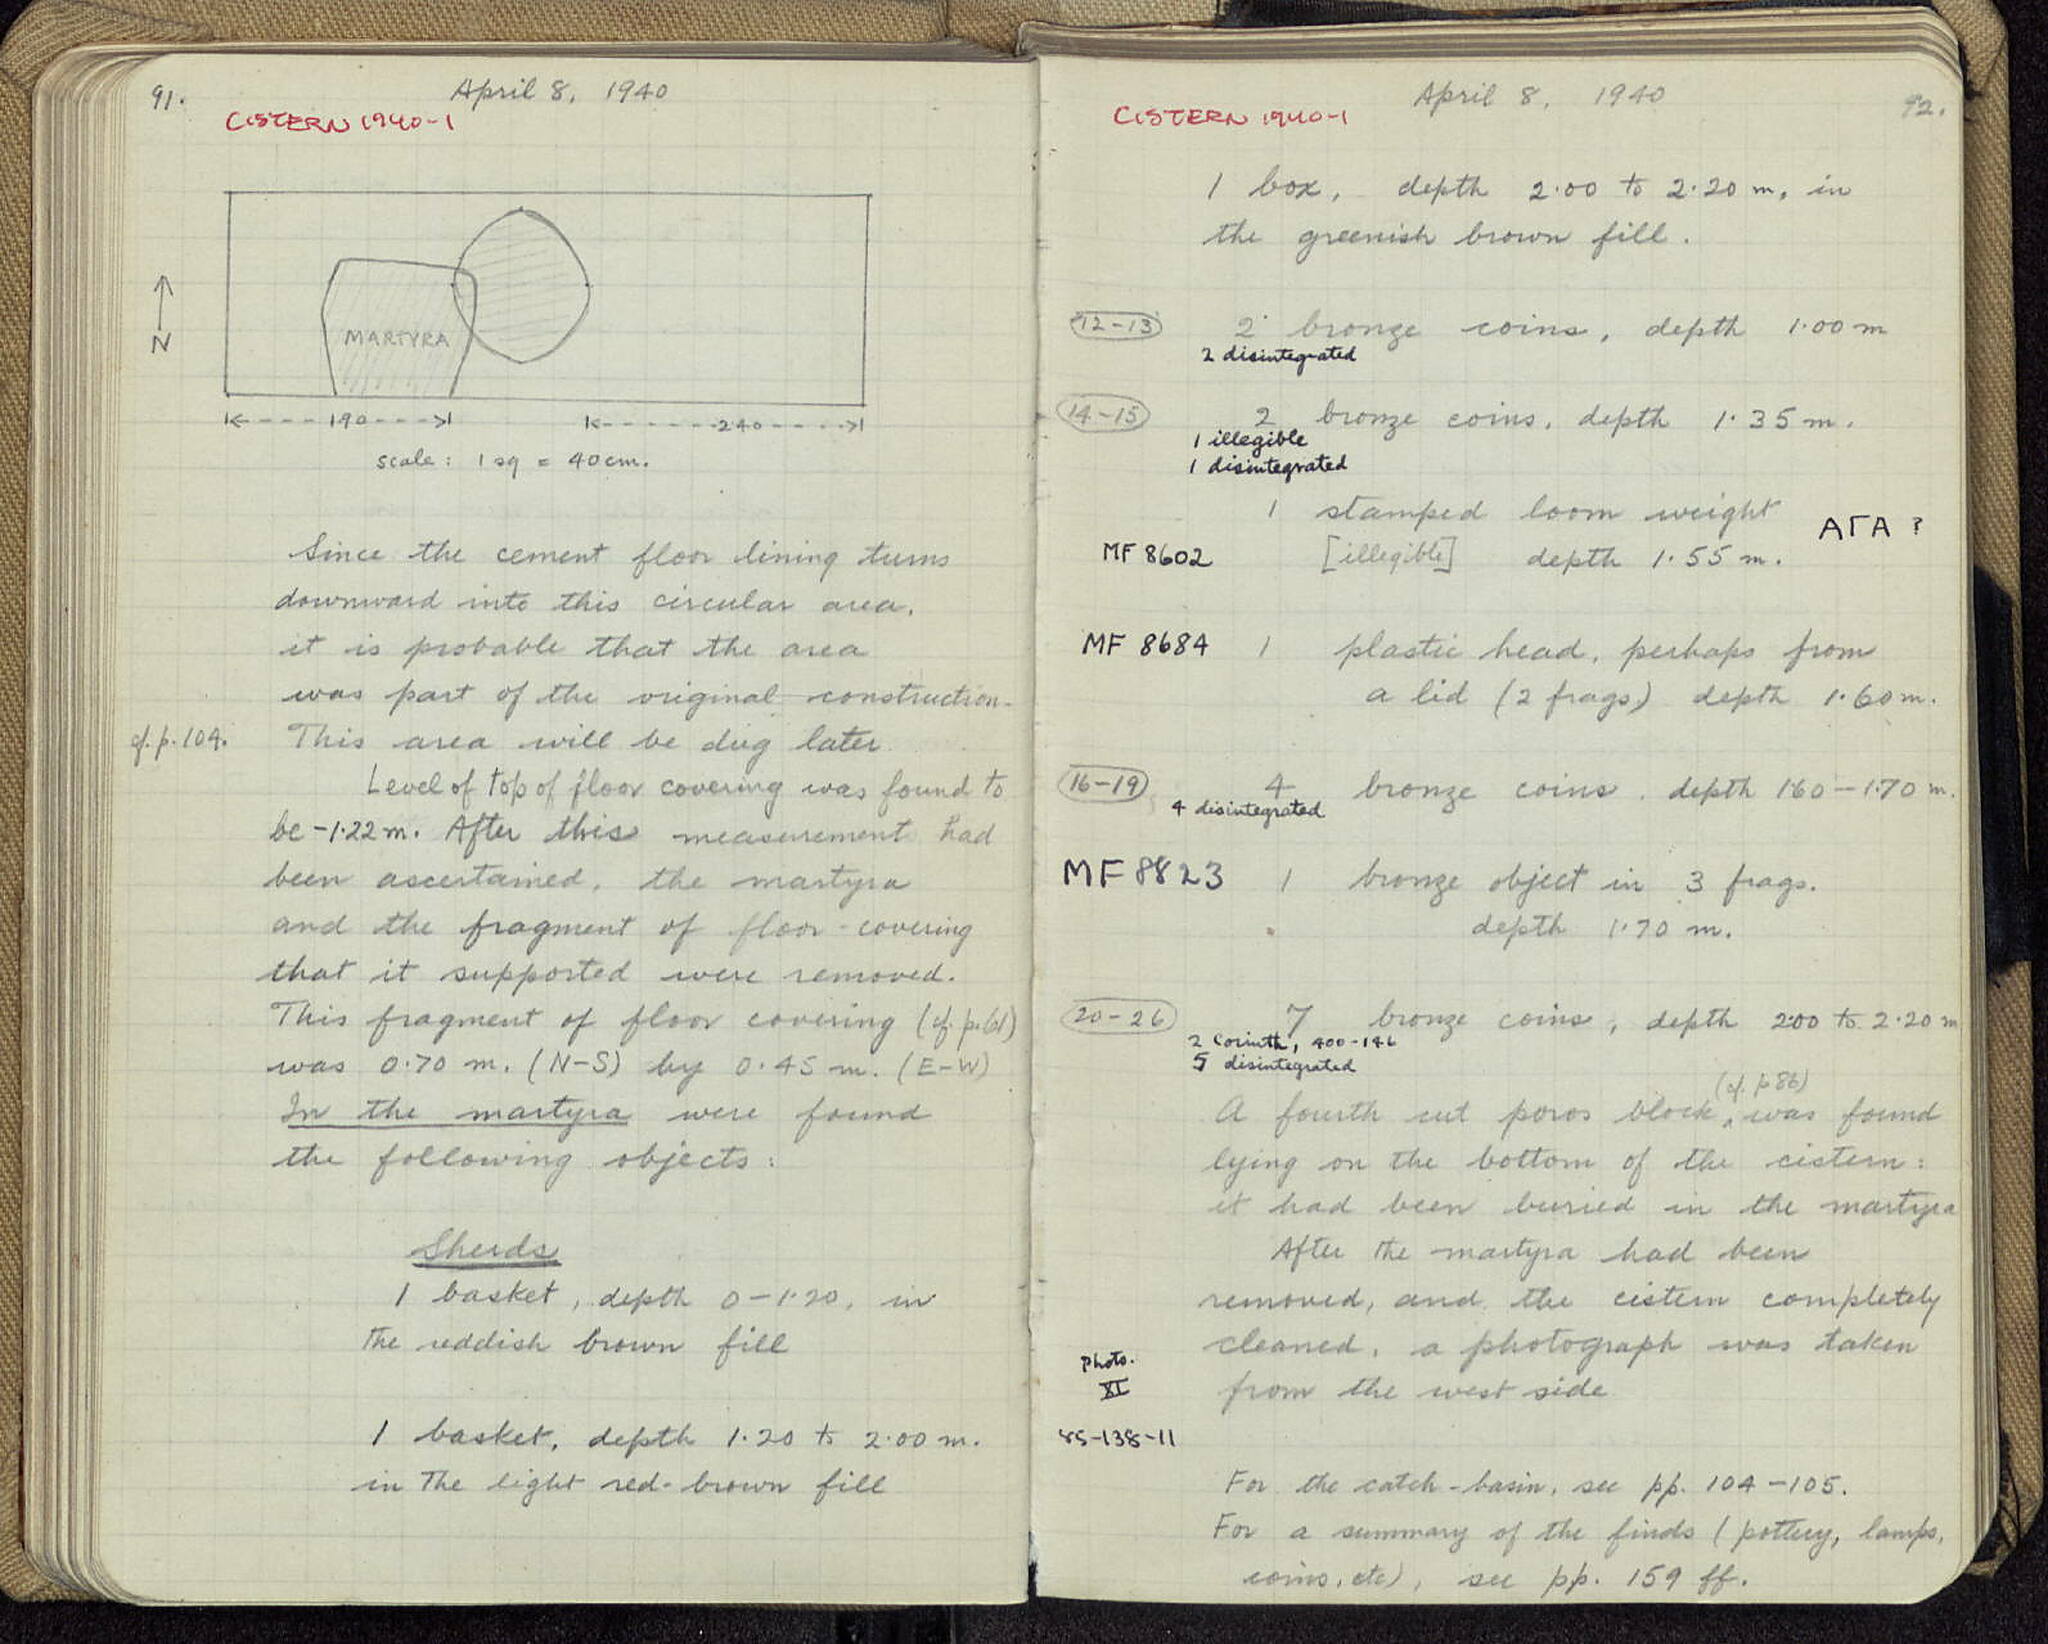 91.
April 8, 1940
CISTERN 1940-1
N
MARTYRA
190
240
scale: 1 sq = 40 cm.
Since the cement floor lining turns
downward into this circular area,
it is probable that the area
was part of the original construction.
cf. p. 104.
This area will be dug later.
Level of top of floor covering was found to
be -1.22 m. After this measurement had
been ascertained, the martyra
and the fragment of floor-covering
that it supported were removed.
This fragment of floor covering (cf. p. 61)
was 0.70 m. (N-S) by 0.45 m. (E-W)
In the martyra were found
the following objects:
Sherds
1 basket, depth 0-1.20, in
the reddish brown fill
1 basket, depth 1.20 to 2.00 m.
in the light red-brown fill
April 8, 1940
92.
CISTERN 1940-1
1 box, depth 2.00 to 2.20 m, in
the greenish brown fill.
12-13 2 bronze coins, depth 1.00 m
2 disintegrated
14-15 2 bronze coins, depth 1.35 m.
1 illegible
1 disintegrated
1 stamped loom weight
ΑΓΑ ?
MF 8602 [illegible] depth 1.55 m.
MF 8684 1 plastic head, perhaps from
a lid (2 frags) depth 1.60 m.
16-19 4 bronze coins, depth 1.60-1.70 m.
4 disintegrated
MF 8823 1 bronze object in 3 frags.
depth 1.70 m.
20-26 7 bronze coins, depth 2.00 to 2.20 m
2 Corinth, 400-146
5 disintegrated
(cf. p 86)
A fourth cut poros block, was found
lying on the bottom of the cistern:
it had been buried in the martyra
After the martyra had been
removed, and the cistern completely
cleaned, a photograph was taken
Photo.
XI
from the west side
85-138-11
For the catch-basin, see pp. 104-105.
For a summary of the finds (pottery, lamps,
coins, etc), see pp. 159 ff.